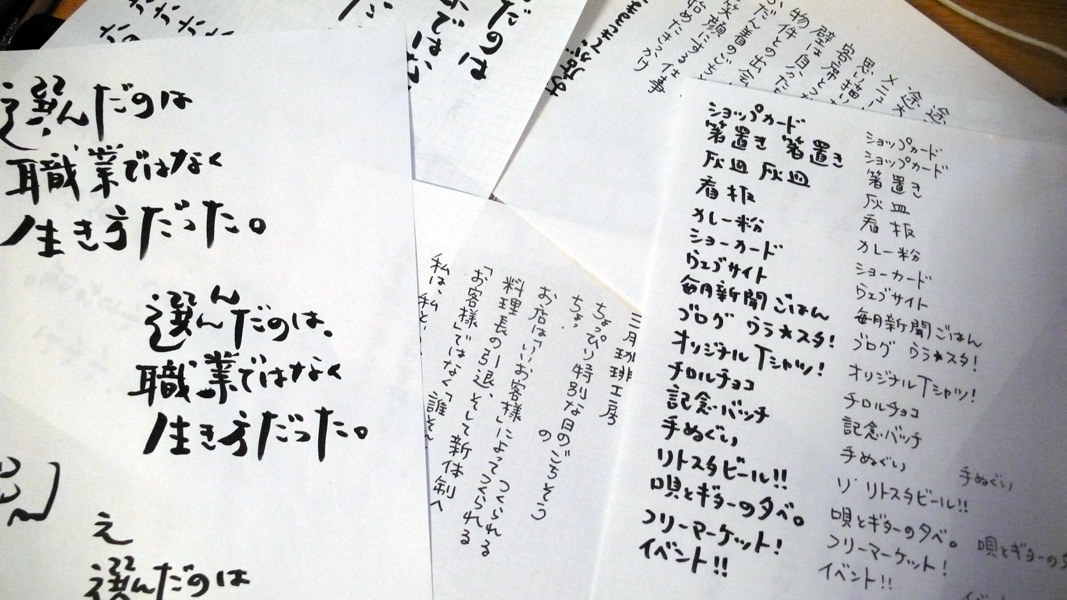 選んだのは
職業ではなく
生き方だった。
選んだのは、
職業ではなく
生き方だった。
え
選んだのは
だのは
ではな
笑顔にする仕事
始めたきっかけ
三月珈琲工房
ちょっぴり特別な日のごちそう
ちょ。
の
お店は「いいお客様」によってつくられる
料理長の引退、そして新体制へ
「お客様」ではなく「誰そ
私は、私
ショップカード
箸置き 箸置き
灰皿 灰皿
看板
カレー粉
ショーカード
ウェブサイト
毎月新聞ごはん
ブログ ウラ★スタ!
オリジナルTシャツ!
チロルチョコ
記念バッチ
手ぬぐい
リトスタビール!!
唄とギターの夕べ。
フリーマーケット!
イベント!!
ショップカード
ショップカード
箸置き
灰皿
看板
カレー粉
ショーカード
ウェブサイト
毎月新聞ごはん
ブログ ウラ★スタ!
オリジナルTシャツ!
チロルチョコ
記念バッチ
手ぬぐい
リ リトスタビール!!
唄とギターの夕べ。
フリーマーケット!
イベント!!
手ぬぐい
唄とギターの